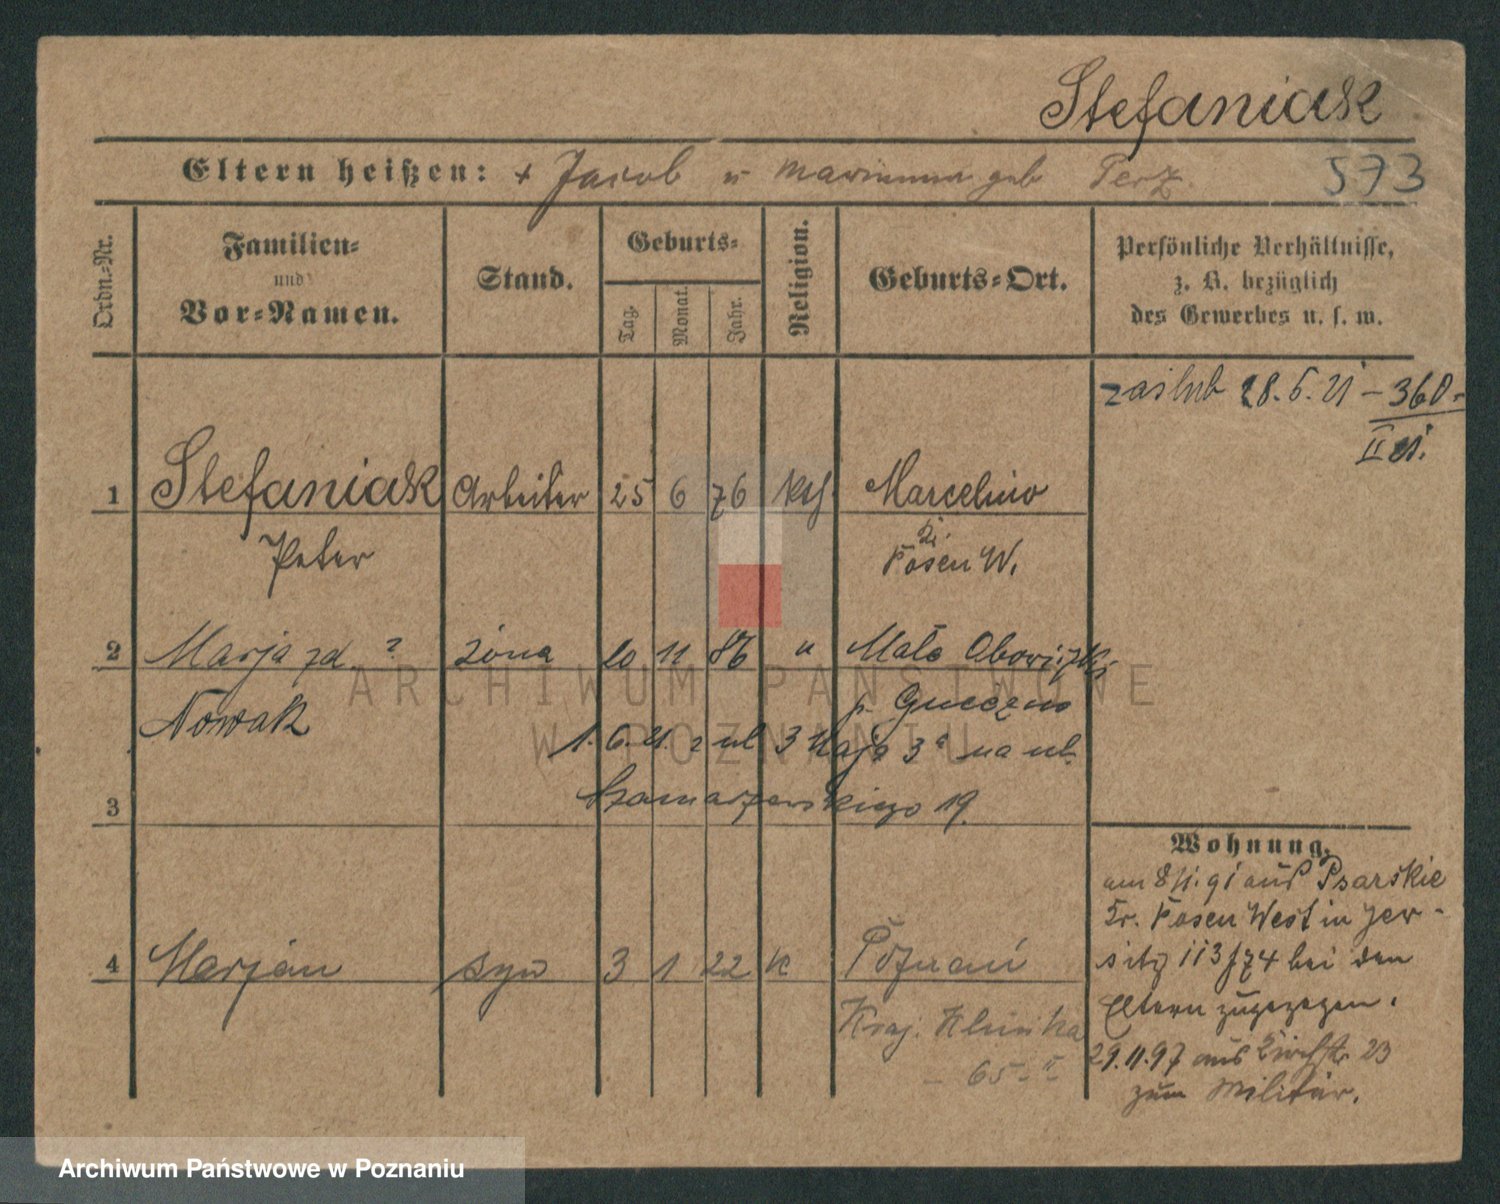 Stefaniak
Eltern heißen: + Jacob u Marianna geb Perz.
573
Ordn.-Nr.
Familien-
und
Vor-Namen.
Stand.
Geburts-
Tag.
Monat.
Jahr.
Religion.
Geburts-Ort.
Persönliche Verhältnisse,
z. B. bezüglich
des Gewerbes u. s. w.
zaślub 28.5.21 – 360.-
II 21.
1 Stefaniak Arbeiter 25 6 76 kth Marcelino
Peter
Kr.
Posen W.
2 Marja zd. ? żona 20 11 86 "
Nowak
p. Gnieźno
1.6.21. z ul 3 Maja 3a na ul.
Szamarzewskiego 19.
3
4 Marjan syn 3 1 22 k Poznań
Kraj. Klinika
– 65 – II
Wohnung.
am 8/11.91 aus Psarskie
Kr. Posen West in Jer-
sitz 113/74 bei den
Eltern zugezogen.
29.11.97 aus Kirchstr. 23
zum Militär.
ARCHIWUM PAŃSTWOWE
W POZNANIU
Archiwum Państwowe w Poznaniu